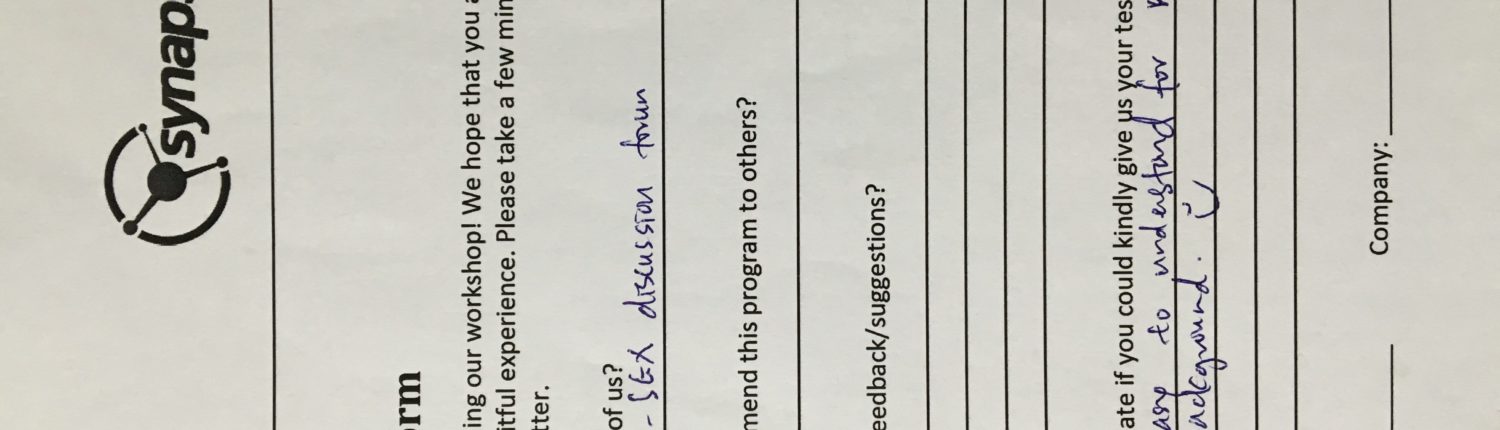 synap
orm
ing our workshop! We hope that you a
itful experience. Please take a few min
tter.
of us?
- SGX discussion forum
mend this program to others?
eedback/suggestions?
ate if you could kindly give us your tes
asy to understand for
ackground.
Company: